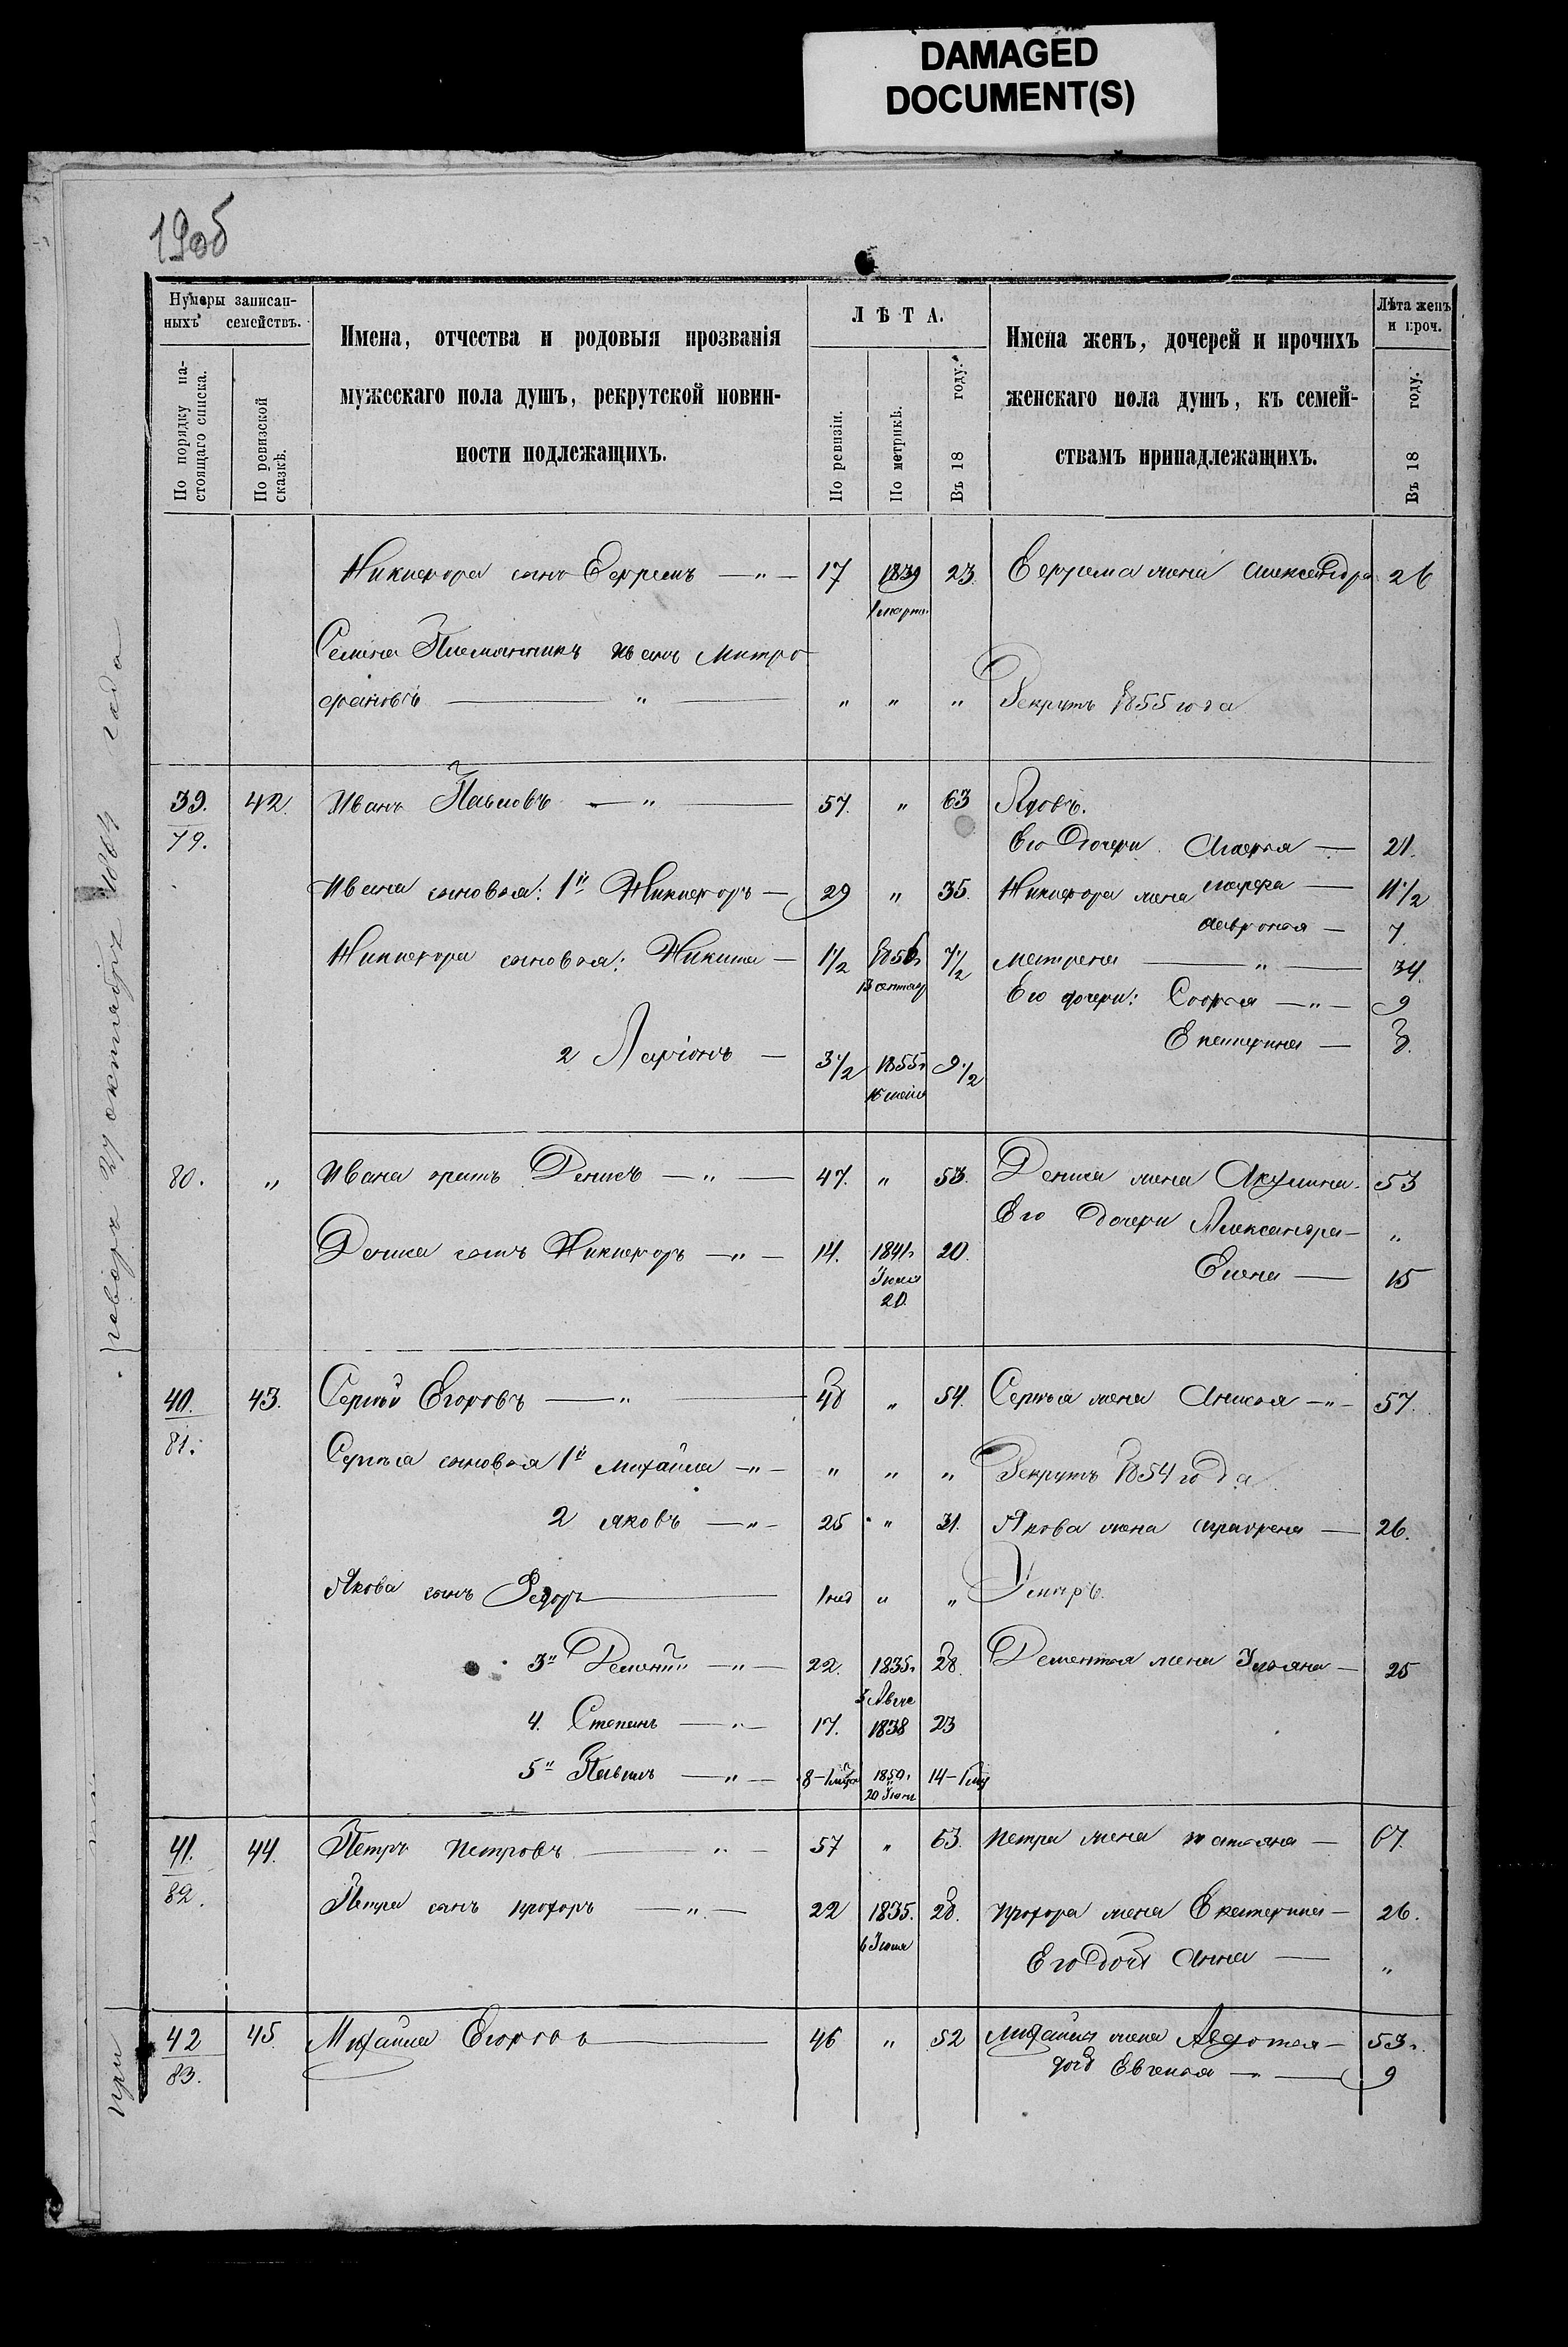 DAMAGED
DOCUMENT(S)
190б
Нумеры записан-
ныхъ семействъ.
По порядку на-
стоящаго списка.
По ревизской
сказкѣ.
Имена, отчества и родовыя прозванія
мужескаго пола душъ, рекрутской повин-
ности подлежащихъ.
ЛѢТА.
По ревизіи.
По метрикѣ.
Въ 18 году.
Имена женъ, дочерей и прочихъ
женскаго пола душъ, къ семей-
ствамъ принадлежащихъ.
Лѣта женъ
и проч.
Въ 18 году.
Никифора сынъ Ефремъ — " — 17 1839 23 Ефрема жена Александра 26
1 марта
Семена Племянникъ Иванъ Митро
фановъ — " — " " " Рекрутъ 1855 года
39. 42 Иванъ Павловъ — " — 57. " 63 Вдовъ.
79. Его Дочери Марья — 21.
Ивана сыновья: 1й Никифоръ — 29 " 35. Никифора жена
Марфа — 11 1/2
7.
Никифора сыновья: Никита — 1 1/2 1856 7 1/2 Матрена — " — 34.
13 сентяб
Его дочери: Софья — " — 9
Екатерина — 3.
2 Ларіонъ — 3 1/2 1855 9 1/2
80. " Ивана братъ Денисъ — " — 47. " 53. Дениса жена Акулина. 53
Его Дочери Александра — "
Дениса сынъ Никифоръ — " — 14. 1841 20.
20.
Елена — 15
40. 43. Сергѣй Егоровъ — " — 48 " 54. Сергѣя жена Анисья — " — 57.
81. Сергѣя сыновья 1й Михайла — " — " " " Рекрутъ 1854 года
2 Яковъ — " — 25 " 31. Якова жена — 26.
Якова сынъ Федоръ — 1 нед " " Умеръ.
3й Дементій — " — 22. 1835 28. Дементья жена Ульяна — 25
4. Степанъ — " — 17. 1838 23
5й Павелъ — " — 8 – 1850. 14 –
41. 44. Петръ Петровъ — " — 57 " 63. Петра жена Татьяна — 67.
82. Петра сынъ Прохоръ — " — 22 1835. 28. Прохора жена Екатерина — 26.
Его дочь Анна — "
42 45. Михайла Егоровъ — 46 " 52 Михайлы жена Авдотья — 53.
83. дочь Евгенья — " — 9
27 октября 1864 года
при